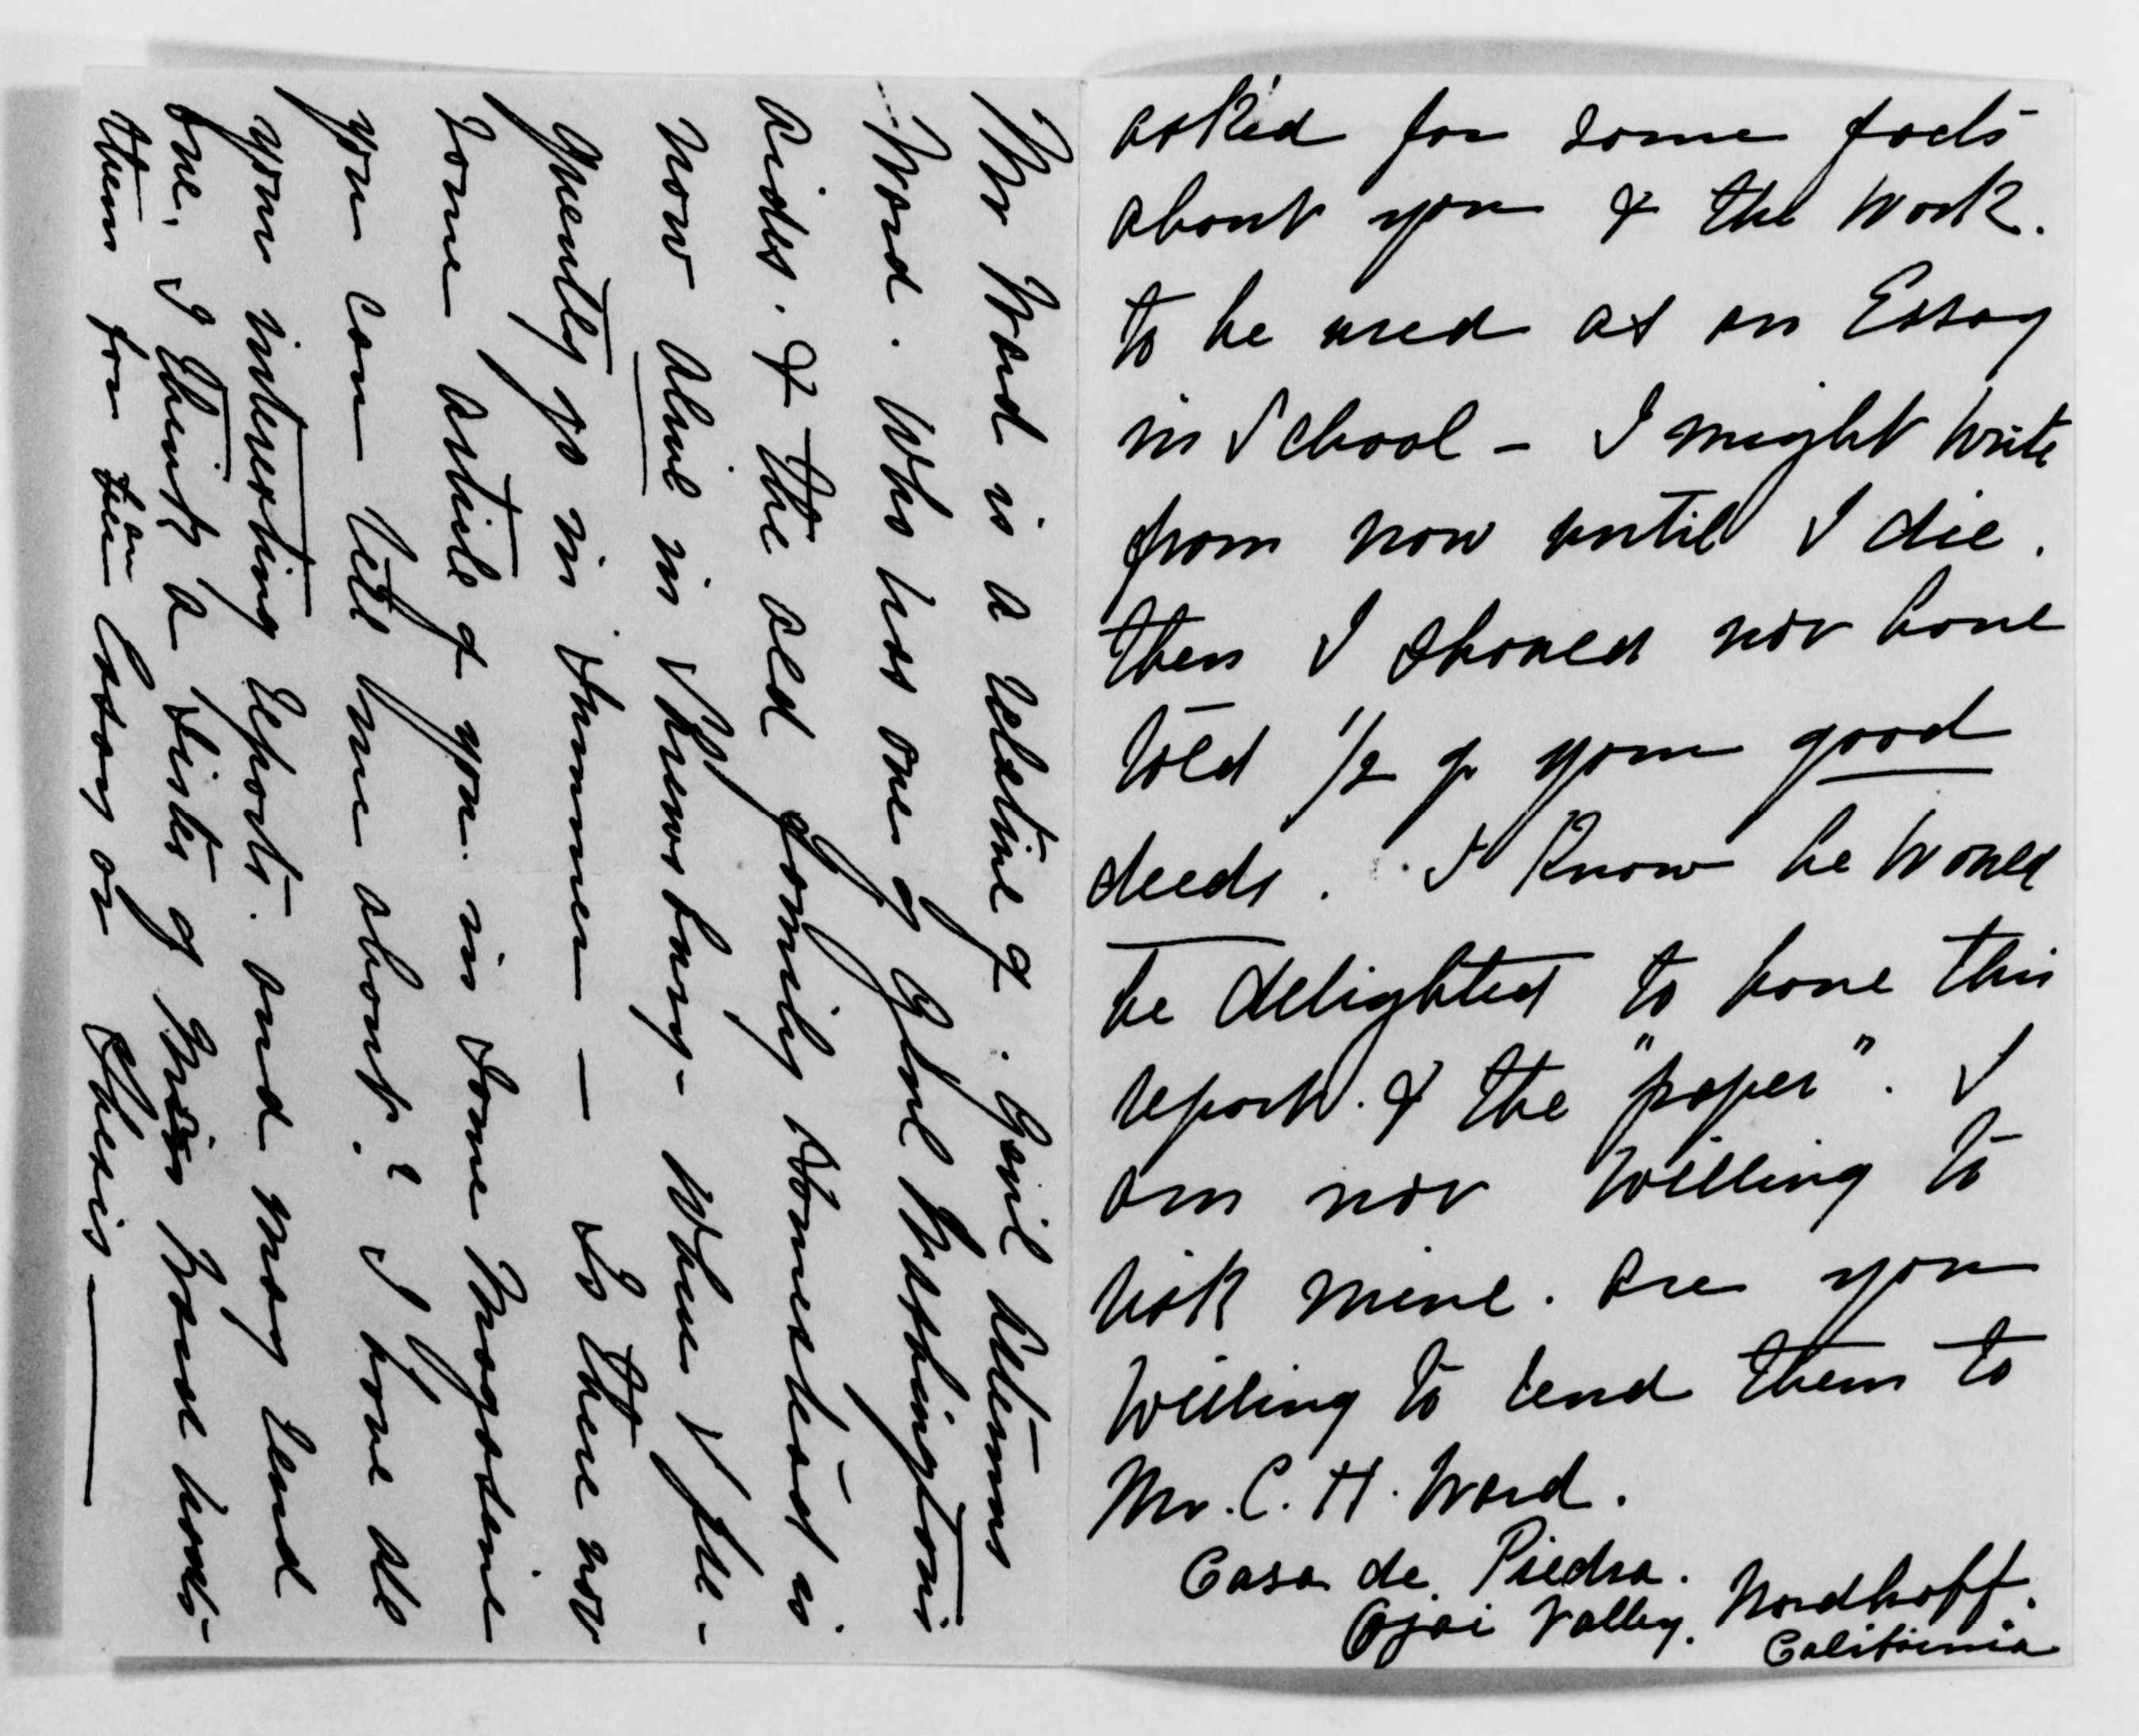 asked for some facts
about you & the work.
to be used as an Essay
in School - I might write
from now until I die.
then I should not have
told 1/2 of your good
deeds. I know he would
be delighted to have this
report. & the "paper". I
am not willing to
risk mine. are you
willing to lend them to
Mr. C. H. Ward.
Casa de Piedra.
Ojai Valley. Nordhoff.
California
Mr Ward is a relative of. Genl Artemus
Ward. Who was one of Genl Washingtons
aides. & the old family homestead is
now alive in Shrewsbury - Where I fre-
quently go in Summer — Is there not
some article of you. in some Magazine
you can tell me about? I have all
your interesting reports. and may lend
one. I think a sister of Miss Ward wants
them for an Essay or Thesis —